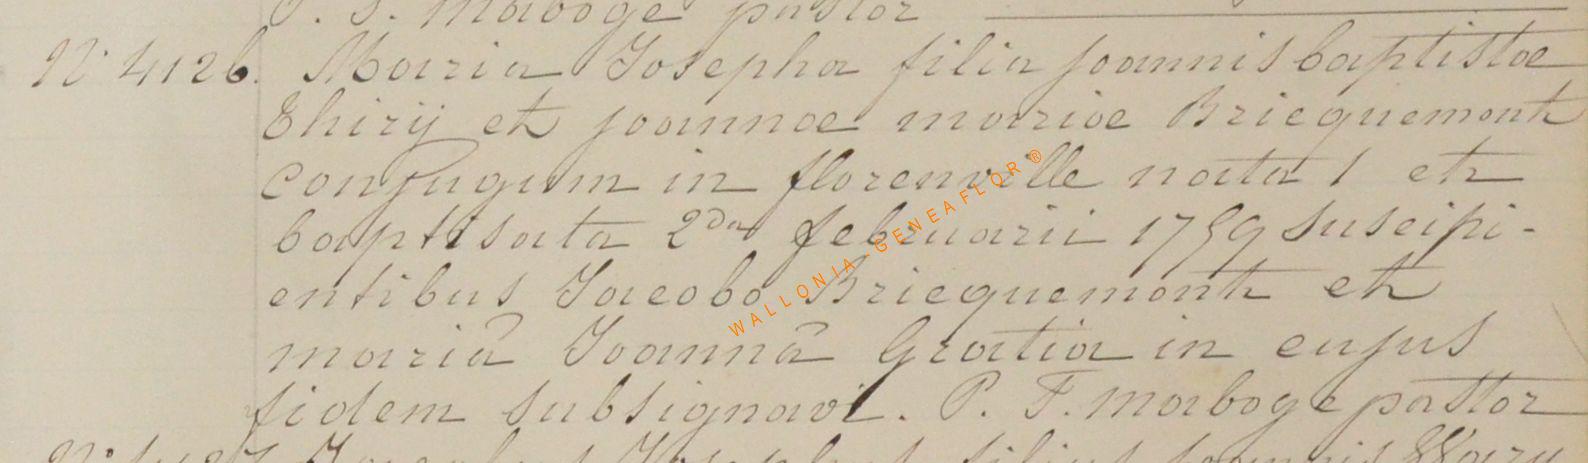 P. F. Maboge pastor
N° 4126. Maria Josepha filia joannis baptistae
Thirij et joannae mariae Bricquemont
conjugum in florenville nata 1 et
baptisata 2da februarii 1759 suscipi-
entibus Jacobo Bricquemont et
mariâ Joannâ Gratia in cujus
fidem subsignavi. P. F. Maboge pastor
WALLONIA-GENEAFLOR®